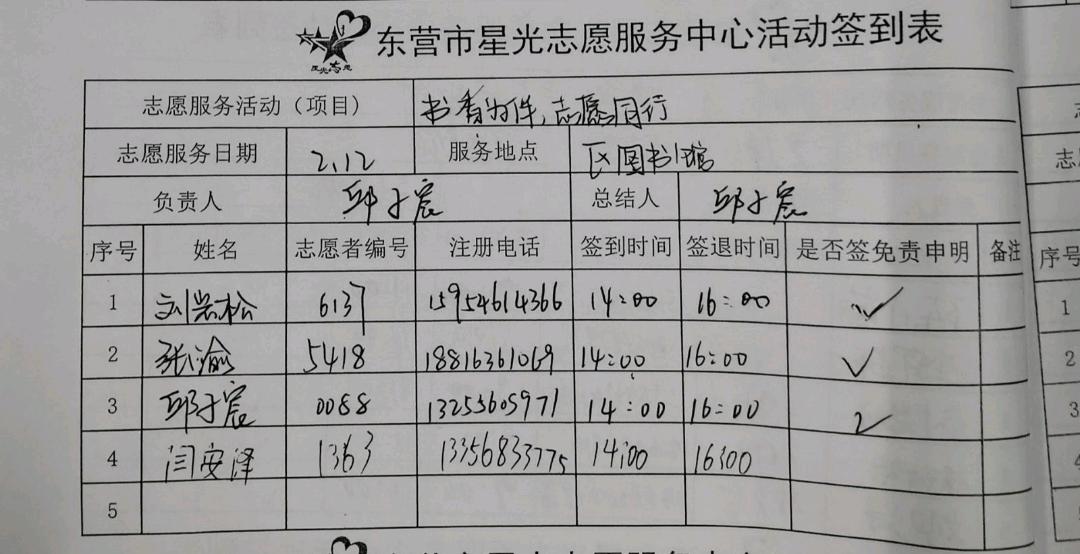 东营市星光志愿服务中心活动签到表
星光志愿
志愿服务活动（项目） 书香为伴,志愿同行
志愿服务日期 2.12 服务地点 区图书馆
负责人 邱子宸 总结人 邱子宸
序号 姓名 志愿者编号 注册电话 签到时间 签退时间 是否签免责申明 备注
1 刘崇松 6137 15954614366 14:00 16:00 ✓
2 张渝 5418 18816361069 14:00 16:00 ✓
3 邱子宸 0088 13255605971 14:00 16:00 ✓
4 闫安泽 1363 13356833775 14:00 16:00
5
序号
1
2
3